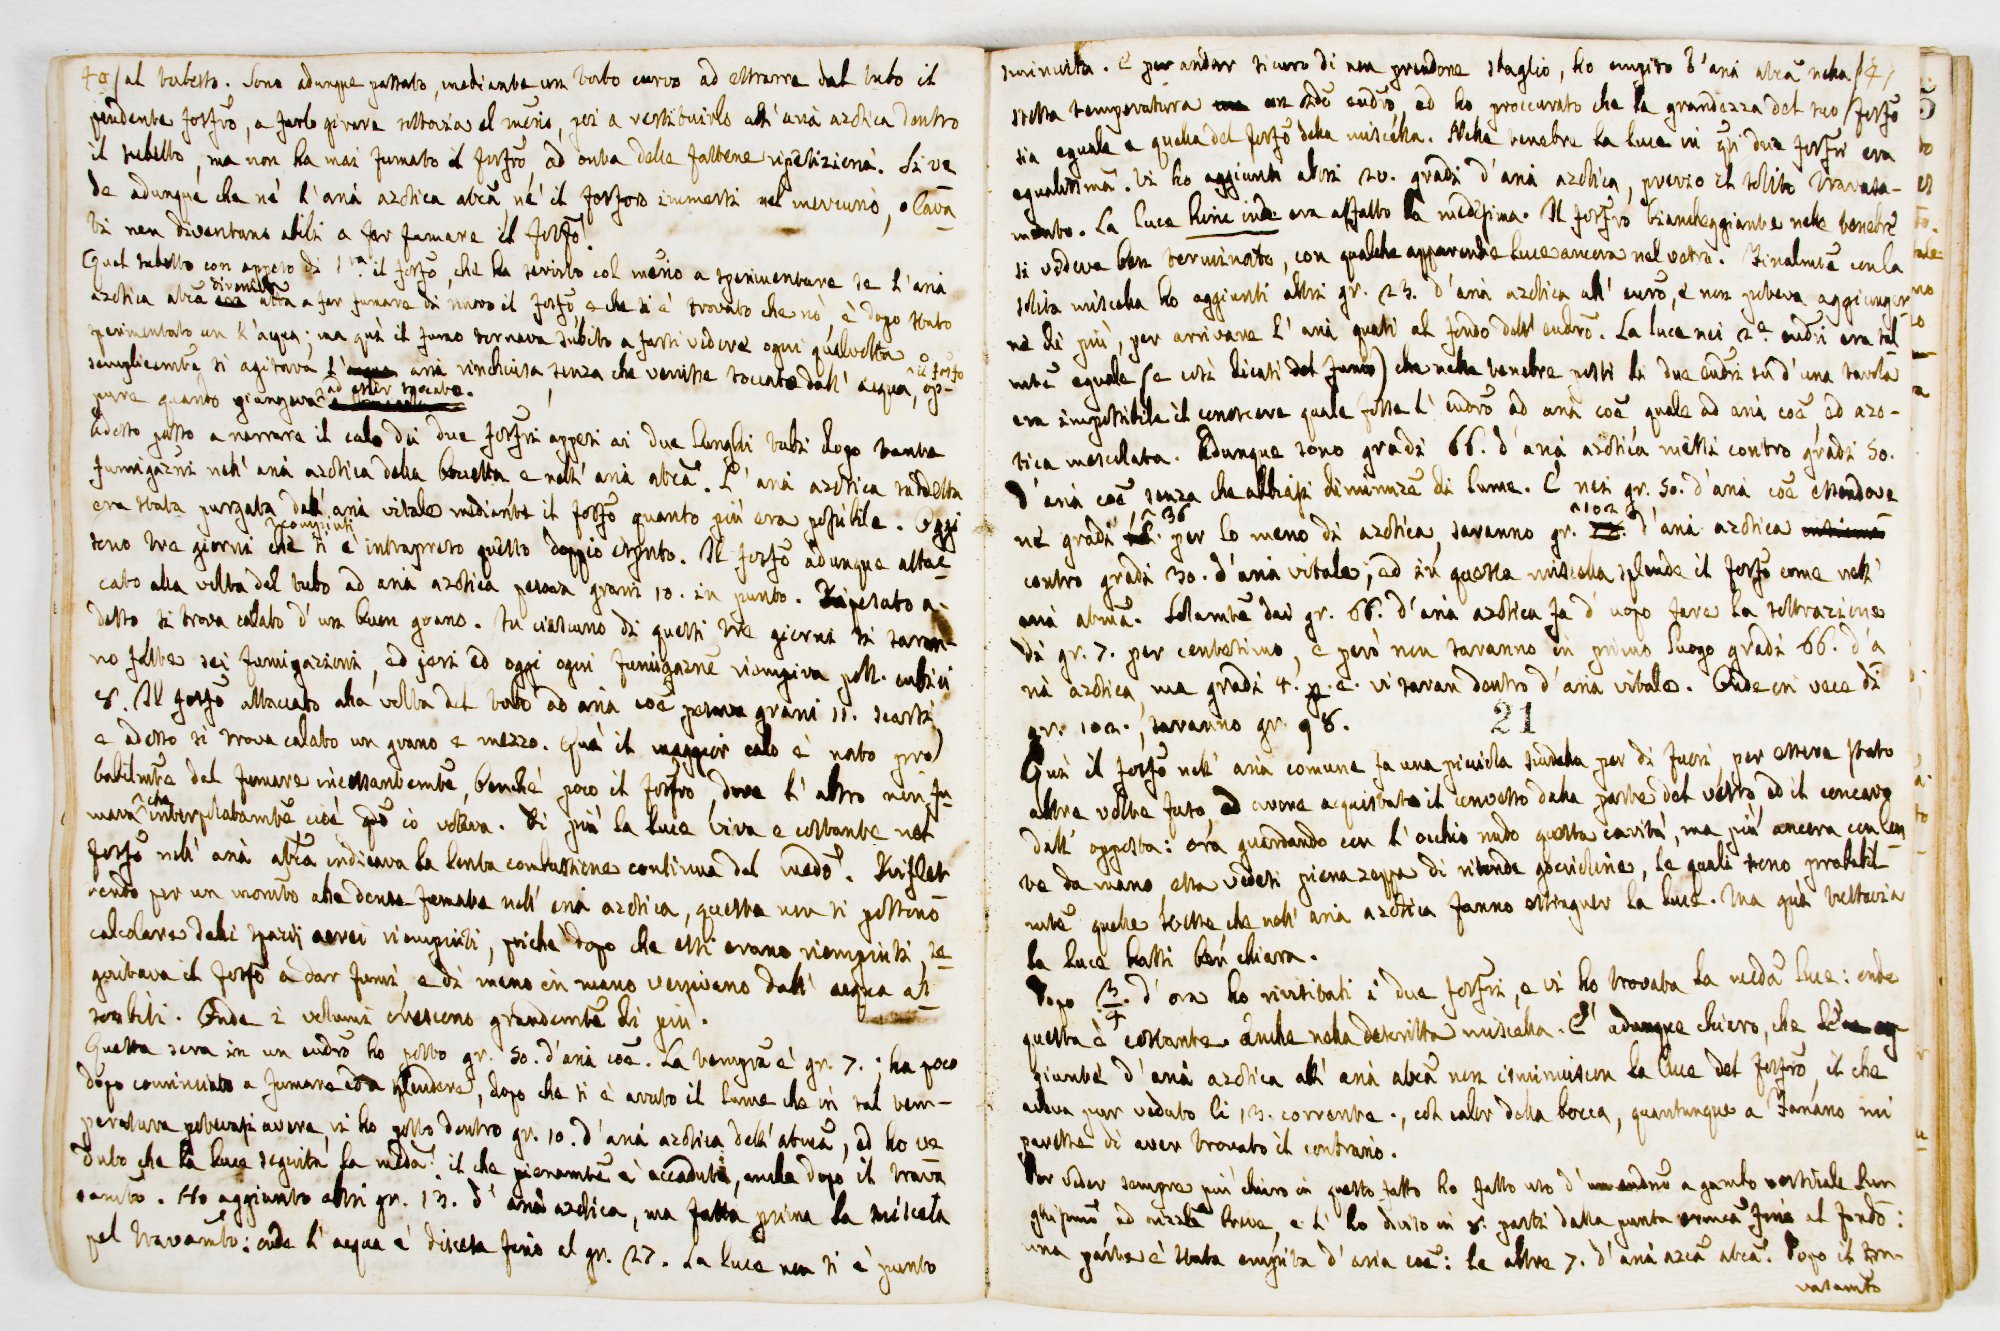 40/ al tubetto. Sono adunque passato, mediante un tubo curvo ad estrarre dal tubo il
pendente fosfõ, a farlo girare tuttavia el merio, poi a restituirlo all'aria azotica dentro
il tubetto, ma non ha mai fumato il fosfrõ, ad onta delle fattene ripetizioni. Si ve
de adunque che nè l'aria azotica atcã, nè il fosforo immersi nel mercurio, o lava
ti non diventano abili a far fumare il fosfõ.
Quel tubetto con appeso di il fosfõ, che ha servito col merio a sperimentare se l'aria
azotica atcã diveniva atta a far fumare di nuovo il fosfõ, e che si è trovato che nò, è dopo stato
sperimentato con l'acqua; ma quì il fumo tornava subito a farsi vedere ogni qualvolta
semplicemte si agitava l' aria rinchiusa senza che venisse toccato dall'acqua, il fosfo op-
pure quando giungeva ad esser toccato.
Adesso passo a narrare il calo dei due fosfri appesi ai due lunghi tubi dopo tante
fumigazni nell'aria azotica della boccetta e nell'aria atcã. L'aria azotica suddetta
era stata purgata dall'aria vitale mediante il fosfõ quanto più era possibile. Oggi
sono tre giorni compiuti che si è intrapreso questo doppio esprto. Il fosfõ adunque attac-
cato alla volta del tubo ad aria azotica pesava grani 10. in punto. Ripesato a-
desso si trova calato d'un buon grano. In ciascuno di questi tre giorni si saran-
no fatte sei fumigazioni, ed jeri ed oggi ogni fumigaznẽ riempiva poll. cubici
8. Il fosfõ attaccato alla volta del tubo ad aria coẽ pesava grani 11. scarsi,
e adesso si trova calato un grano e mezzo. Quà il maggior calo è nato pro
babilmte dal fumare incessantemte, benchè poco il fosfro, dove l'altro non fu-
mava che interpolatamte cioè qdo io voleva. Di più la luce viva e costante nel
fosfõ nell'aria atcã indicava la lenta combustione continua del medõ. Riflet
tendo per un momto alla densa fumata nell'aria azotica, questa non si possono
calcolare dalli spazij aerei riempiuti, poichè dopo che essi erano riempiuti, se-
guitava il fosfõ a dar fumi e di mano in mano venivano dall'acqua as
sorbiti. Onde i volumi crescono grandemte di più.
Questa sera in un eudrõ ho posto gr. 50. d'aria coẽ. La tempra è gr. 7.; ha poco
dopo cominciato a fumare ed a splendere, dopo che si è avuto il lume che in tal tem-
peratura potevasi avere, vi ho posto dentro gr. 10. d'aria azotica dell'atcã, ed ho ve
duto che la luce seguita la medã: il che pienamte è accaduto, anche dopo il trava
samto. Ho aggiunto altri gr. 13. d'aria azotica, ma fatta prima la miscela
pel travasamto: onde l'acqua è discesa fino al gr. 27. La luce non si è punto
sminuita. E per andar sicuro di non prendere sbaglio, ho empito d'aria atcã nella (41
stessa temperatura un altro eudrõ, ed ho proccurato che la grandezza del suo fosfõ
sia eguale a quella del fosfõ della miscella. Nelle tenebre la luce in qti due fosfri era
egualissima. Vi ho aggiunti altri 20. gradi d'aria azotica, previo il solito travasa-
mento. La luce hinc inde era affatto la medesima. Il fosfro biancheggiante nelle tenebre
si vedeva ben terminato, con qualche apparende luce ancora nel vetro. Finalmte con la
solita miscella ho aggiunti altri gr. 23. d'aria azotica all'eurõ, e non poteva aggiunger-
nè di più, per arrivare l'aria quasi al fondo dell'eudrõ. La luce nei 2e. eudri era tal
mte eguale (e così dicasi del fumo) che nelle tenebre posti li due eudri su d'una tavola
era impossibile il conoscere quale fosse l'eudrõ ad aria coẽ, quale ad aria coẽ, ed azo-
tica mescolata. Adunque sono gradi 66. d'aria azotica messi contro gradi 50.
d'aria coẽ senza che abbiasi diminuzẽ di lume. E nei gr. 50. d'aria coẽ essendove
nè gradi 36 per lo meno di azotica, saranno gr. 102 d'aria azotica
contro gradi 30. d'aria vitale; ed in questa miscella splende il fosfõ come nell'
aria atmã. Solamte dai gr. 66. d'aria azotica fa d'uopo fare la sottrazione
di gr. 7. per centesimo, e però non saranno in primo luogo gradi 66. d'a
ria azotica, ma gradi 4. p. e. vi saran dentro d'aria vitale. Onde in vece di
gr. 102., saranno gr. 98.
21
Quì il fosfõ nell'aria comune fa una piccicla scudella per di fuori per essere stato
altre volte fuso, ed avere acquistato il convesso dalla parte del vetro, ed il concavo
dall'opposta: ora guardando con l'occhio nudo questa cavità, ma più ancora con len
te da mano essa vedesi piena zeppa di ritonde goccioline, le quali sono probabil
mte quelle stesse che nell'aria azotica fanno estinguer la luce. Ma quà tuttavia
la luce hassi ben chiara.
Dopo 3/4 d'ora ho rivisitati i due fosfri, e vi ho trovata la medã luce: onde
questa è costante anche nella descritta miscella. E' adunque chiaro, che le ag-
giunte d'aria azotica all'aria atcã non isminuiscon la luce del fosfrõ, il che
aveva pur veduto li 13. corrente., col calor della bocca, quantunque a Fanano mi
paresse di aver trovato il contrario.
Per veder sempre più chiaro in questo fatto ho fatto uso d'un eudrõ a gambo verticale lun
ghissimo ed ampolla breve, e l'ho diviso in 8. parti dalla punta fino al fondo:
una parte è stata empita d'aria coẽ: le altre 7. d'aria azcã atcã. Dopo il tra-
vasamto